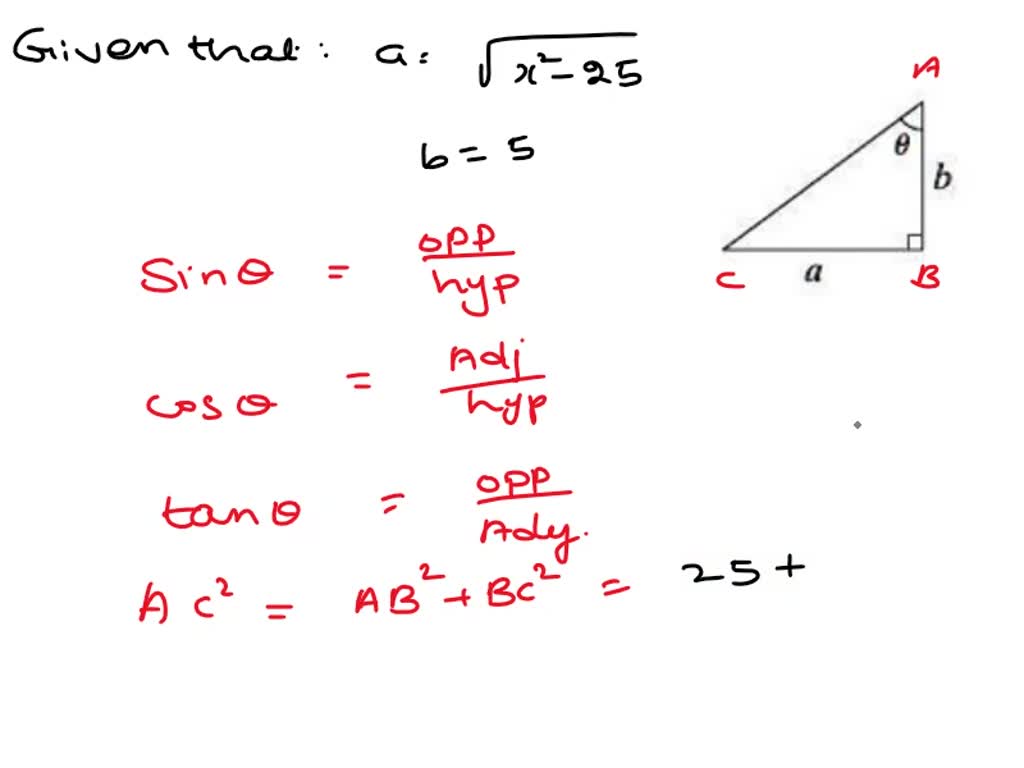 Given that: a = √x²-25
b = 5
Sinθ = opp/hyp
cosθ = Adj/hyp
tanθ = opp/Ady.
AC² = AB² + BC² = 25 +
A
θ
b
C a B